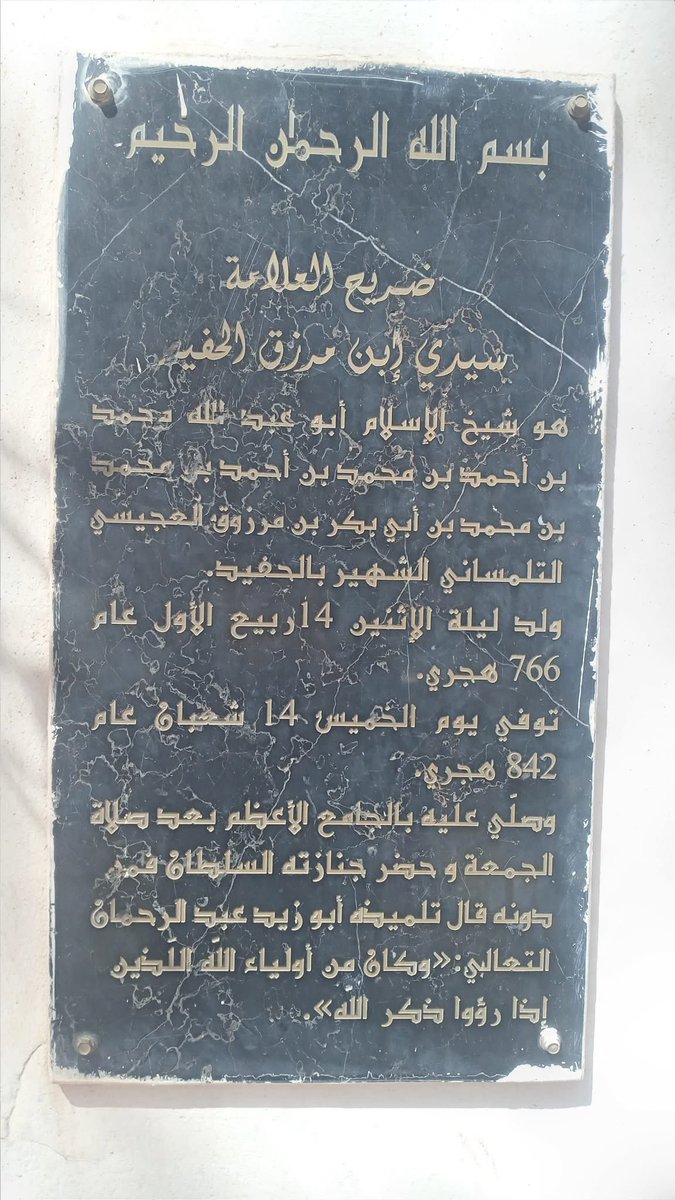 بسم الله الرحمان الرحيم
ضريح العلامة
سيدي إبن مرزق الحفيد
هو شيخ الاسلام أبو عبد الله محمد
بن أحمد بن محمد بن أحمد بن محمد
بن محمد بن أبي بكر بن مرزوق العجيسي
التلمساني الشهير بالحفيد.
ولد ليلة الإثنين 14ربيع الأول عام
766 هجري.
توفي يوم الخميس 14 شعبان عام
842 هجري.
وصلّي عليه بالجامع الأعظم بعد صلاة
الجمعة و حضر جنازته السلطان فمن
دونه قال تلميذه أبو زيد عبد الرحمان
الثعالبي:«وكان من أولياء الله اللّذين
إذا رؤوا ذكر الله».